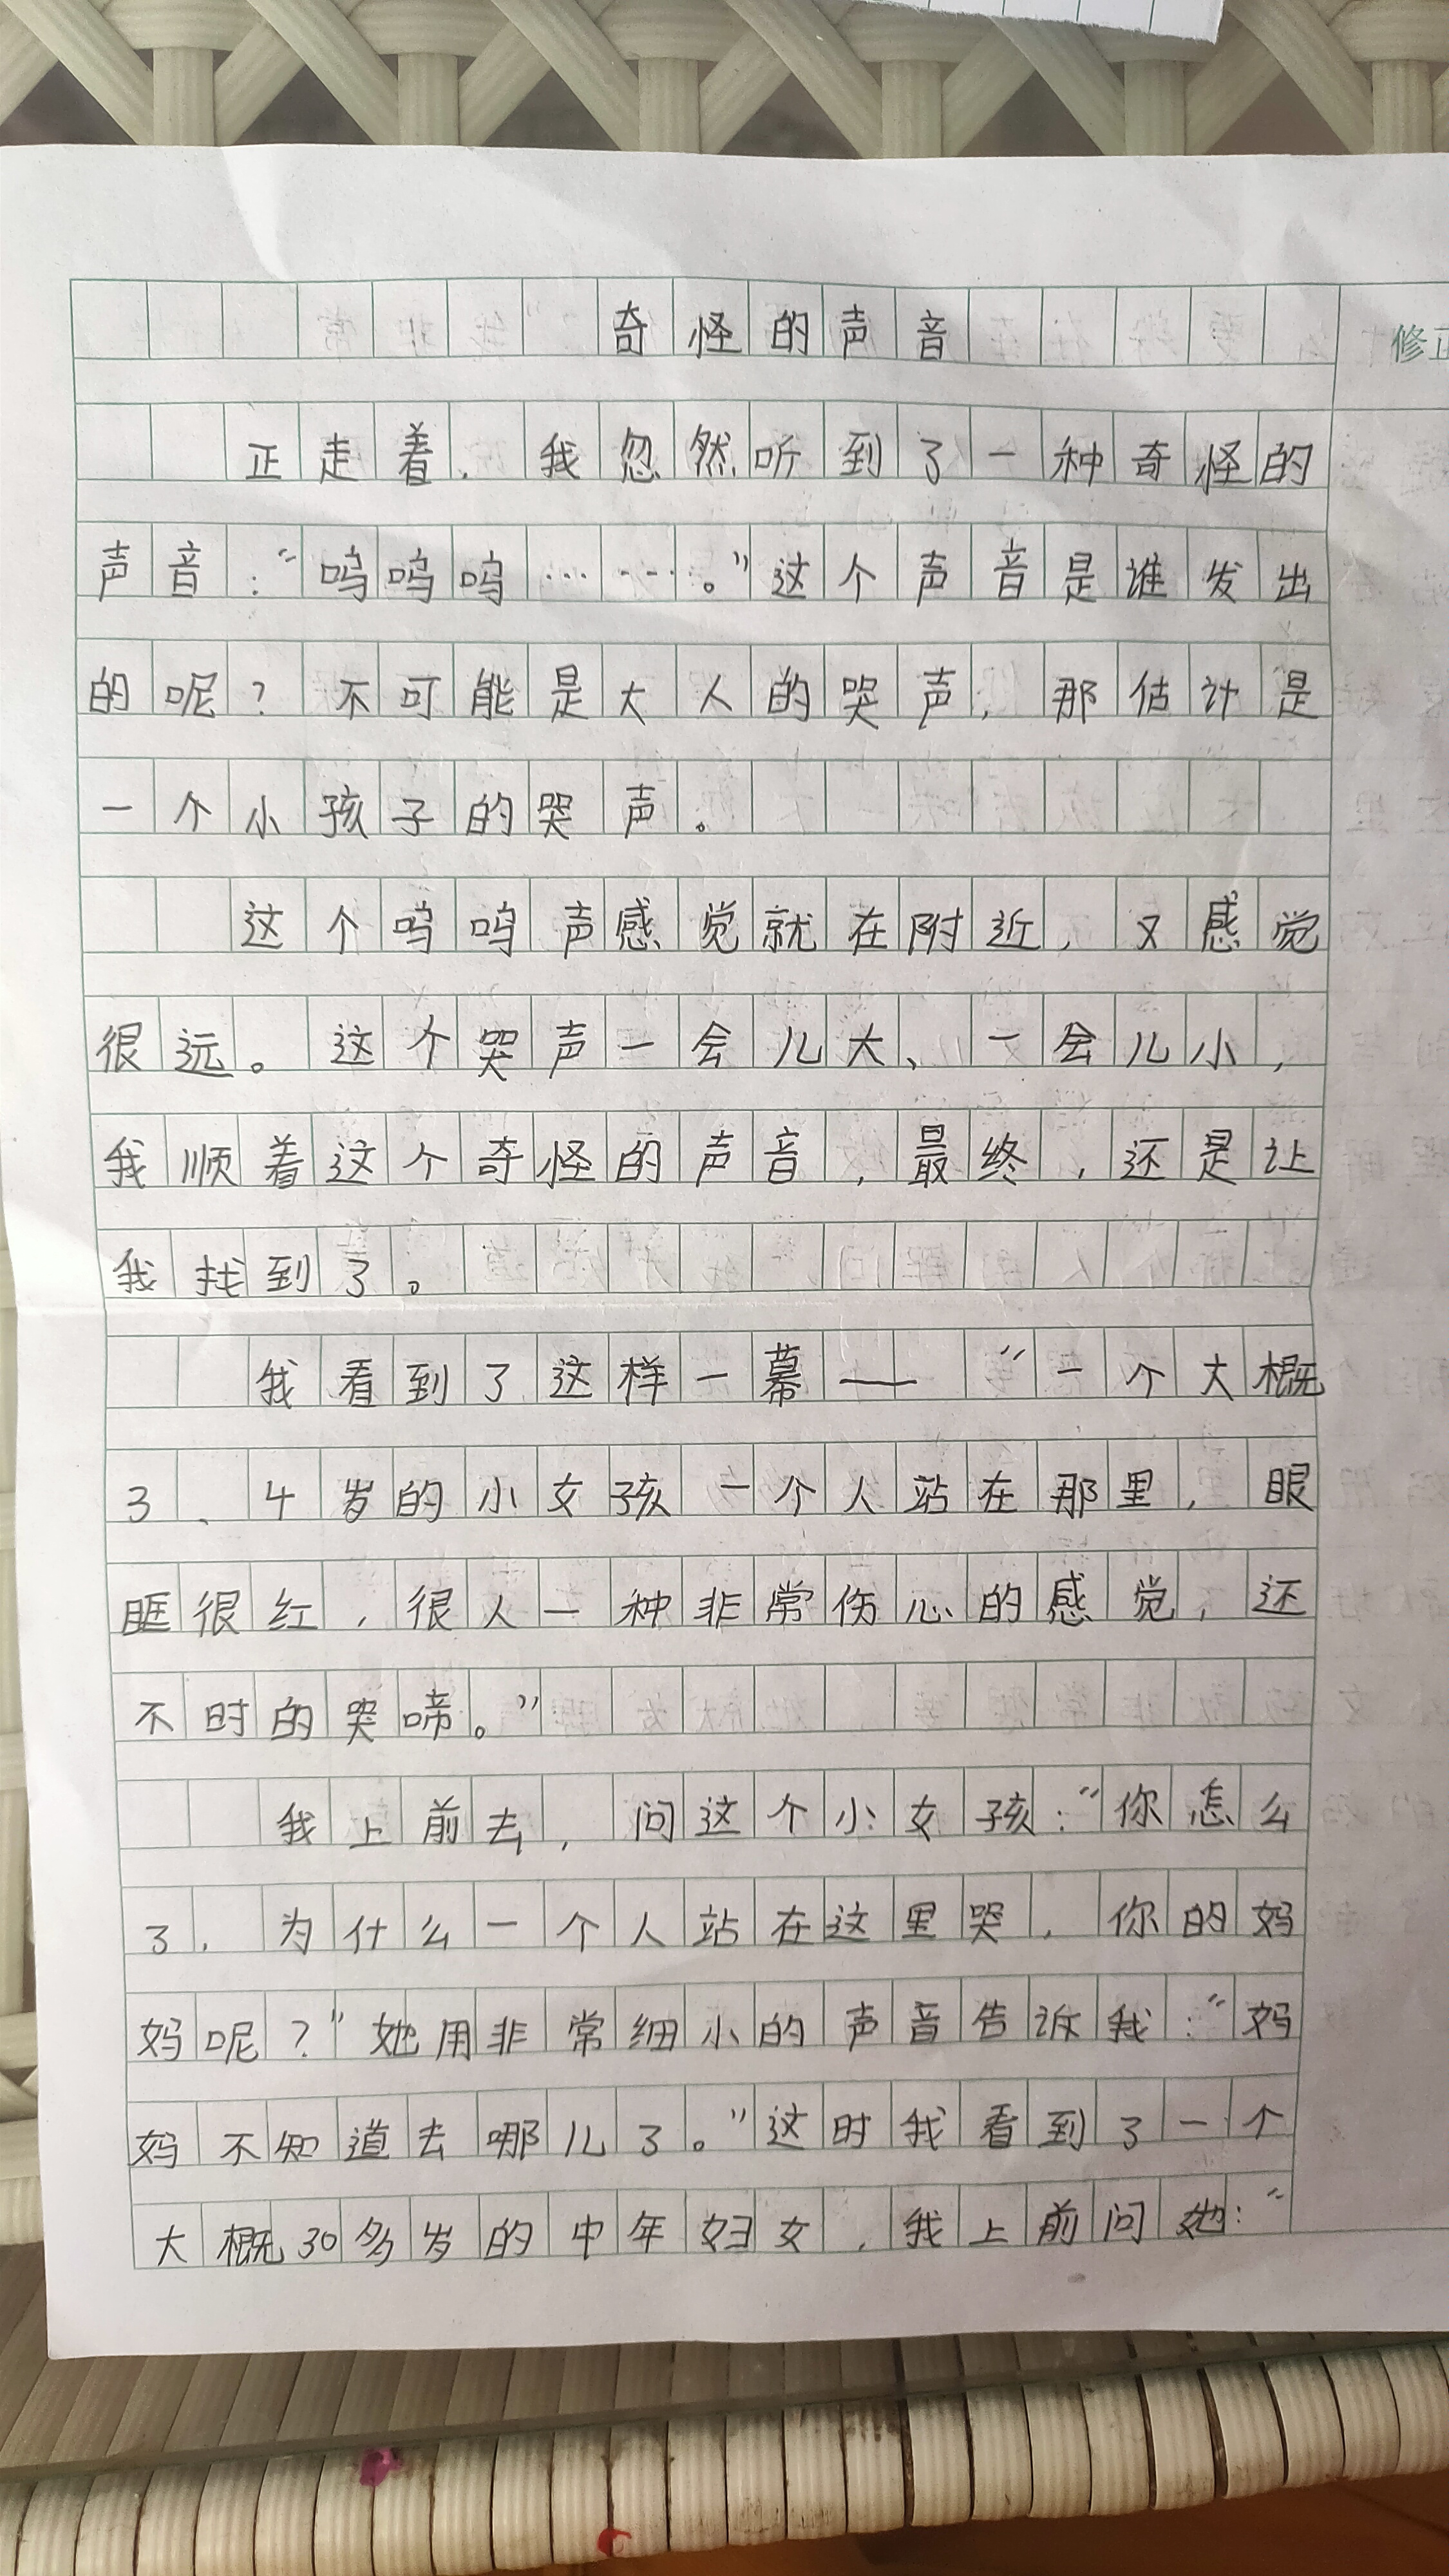 奇怪的声音
修正
正走着，我忽然听到了一种奇怪的
声音：“呜呜呜……。”这个声音是谁发出
的呢？不可能是大人的哭声，那估计是
一个小孩子的哭声。
这个呜呜声感觉就在附近，又感觉
很远。这个哭声一会儿大、一会儿小，
我顺着这个奇怪的声音，最终，还是让
我找到了。
我看到了这样一幕——“一个大概
3、4岁的小女孩一个人站在那里，眼
眶很红，很人一种非常伤心的感觉，还
不时的哭啼。”
我上前去，问这个小女孩：“你怎么
了，为什么一个人站在这里哭，你的妈
妈呢？”她用非常细小的声音告诉我：“妈
妈不知道去哪儿了。”这时我看到了一个
大概30多岁的中年妇女，我上前问她：“